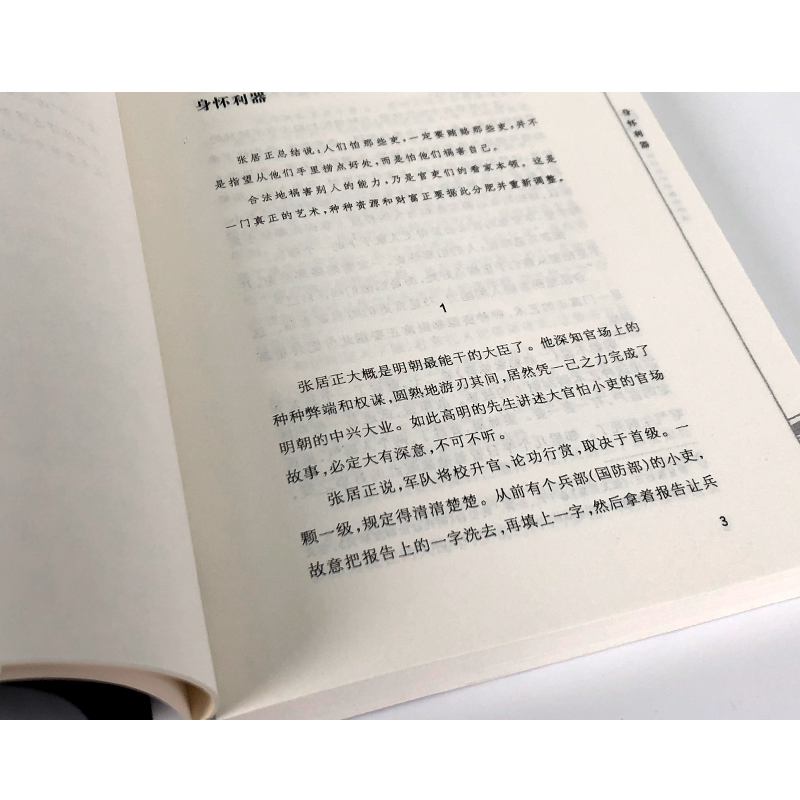 身怀利器
张居正总结说：人们怕那些吏，一定要贿赂那些吏，并不
是指望从他们手里捞点好处，而是怕他们祸害自己。
合法地祸害别人的能力，乃是官吏们的看家本领。这是
一门真正的艺术，种种资源和财富正要据此分肥并重新调整。
1
张居正大概是明朝最能干的大臣了。他深知官场上的
种种弊端和权谋，圆熟地游刃其间，居然凭一己之力完成了
明朝的中兴大业。如此高明的先生讲述大官怕小吏的官场
故事，必定大有深意，不可不听。
张居正说，军队将校升官、论功行赏，取决于首级。一
颗一级，规定得清清楚楚。从前有个兵部（国防部）的小吏，
故意把报告上的一字洗去，再填上一字，然后拿着报告让兵
3
身怀利器